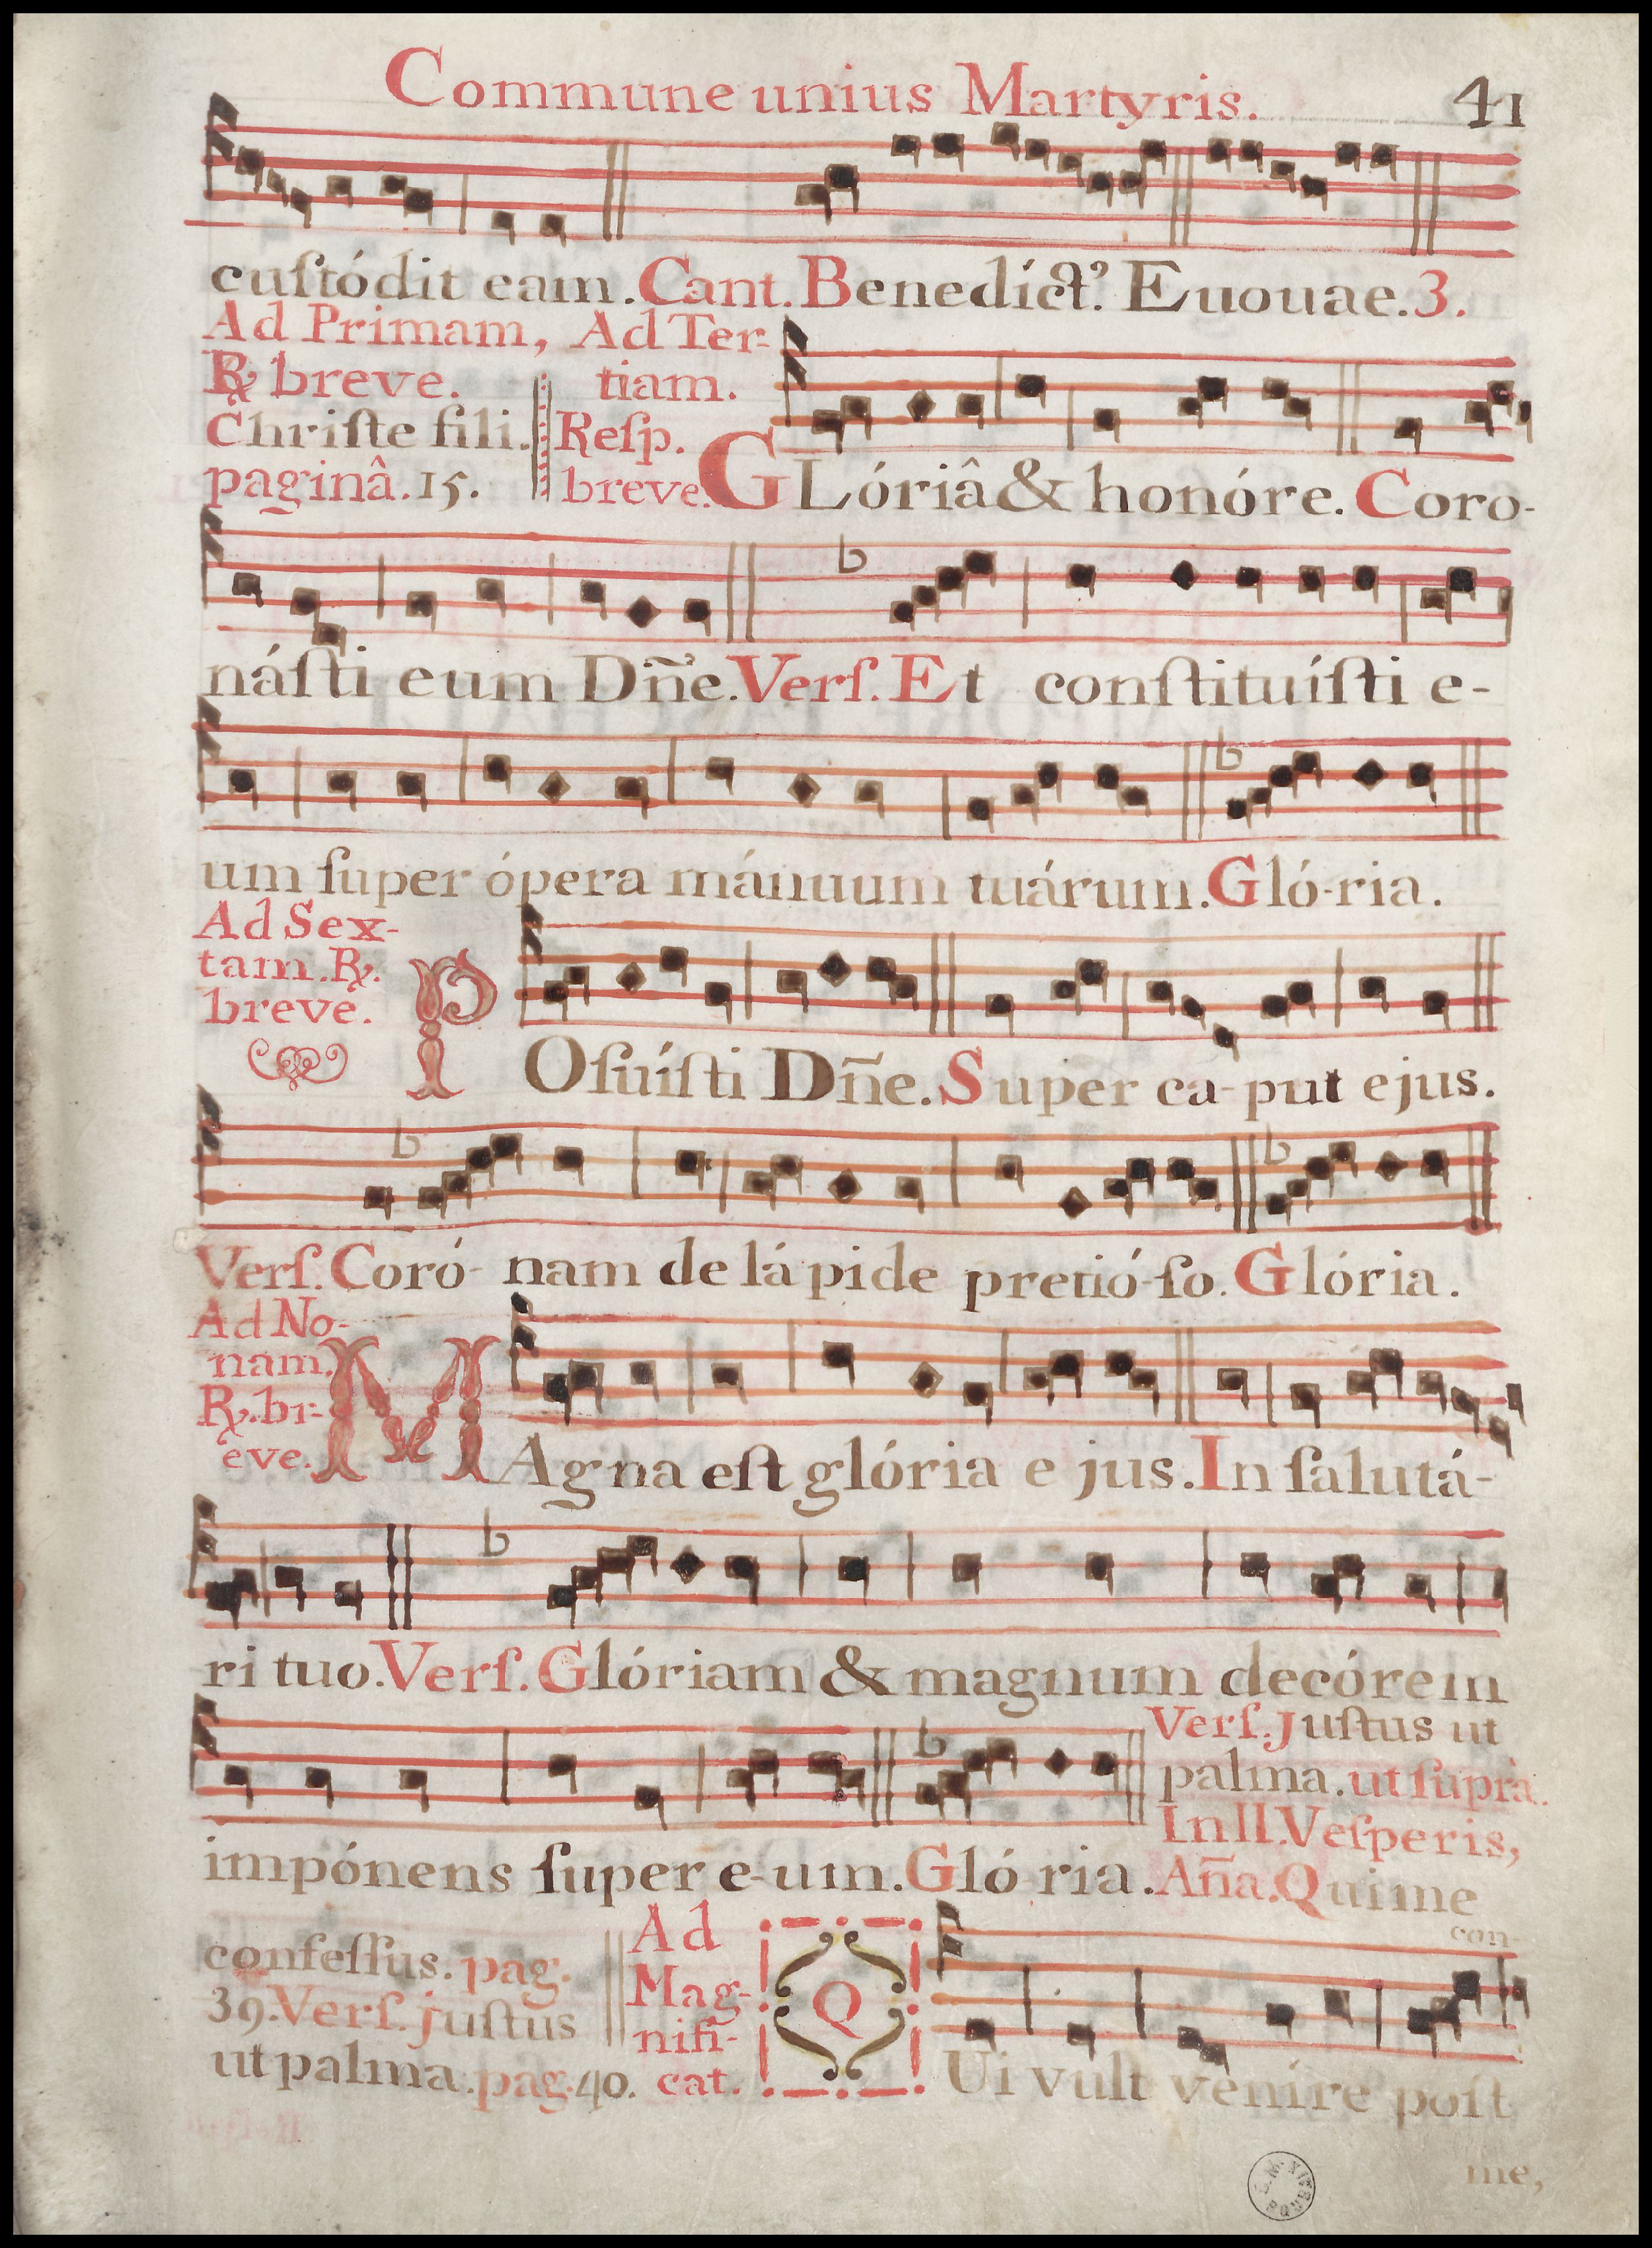 Commune unius Martyris. 41
cuſtódit eam. Cant. Benedíct.⁹ Euouae. 3.
Ad Primam,
℟ breve.
Chriſte fili.
paginâ. 15.
Ad Ter-
tiam.
Reſp.
breve. GLóriâ & honóre. Coro-
náſti eum Dñe. Verſ. Et conſtituíſti e-
um ſuper ópera mánuum tuárum. Gló-ria.
Ad Sex-
tam. ℟.
breve.
POſuíſti Dñe. Super ca-put ejus.
Verſ. Coró- nam de lápide pretió-ſo. Glória.
Ad No-
nam.
℟. br-
eve.
MAgna eſt glória e jus. In ſalutá-
ri tuo. Verſ. Glóriam & magnum decórem
impónens ſuper e-um. Gló ria.
Verſ. Juſtus ut
palma. ut ſuprà.
In II. Veſperis,
Aña. Qui me
con-
confeſſus. pag.
39. Verſ. juſtus
ut palma. pag. 40.
Ad
Mag-
nifi-
cat.
QUi vult veníre poſt
me,